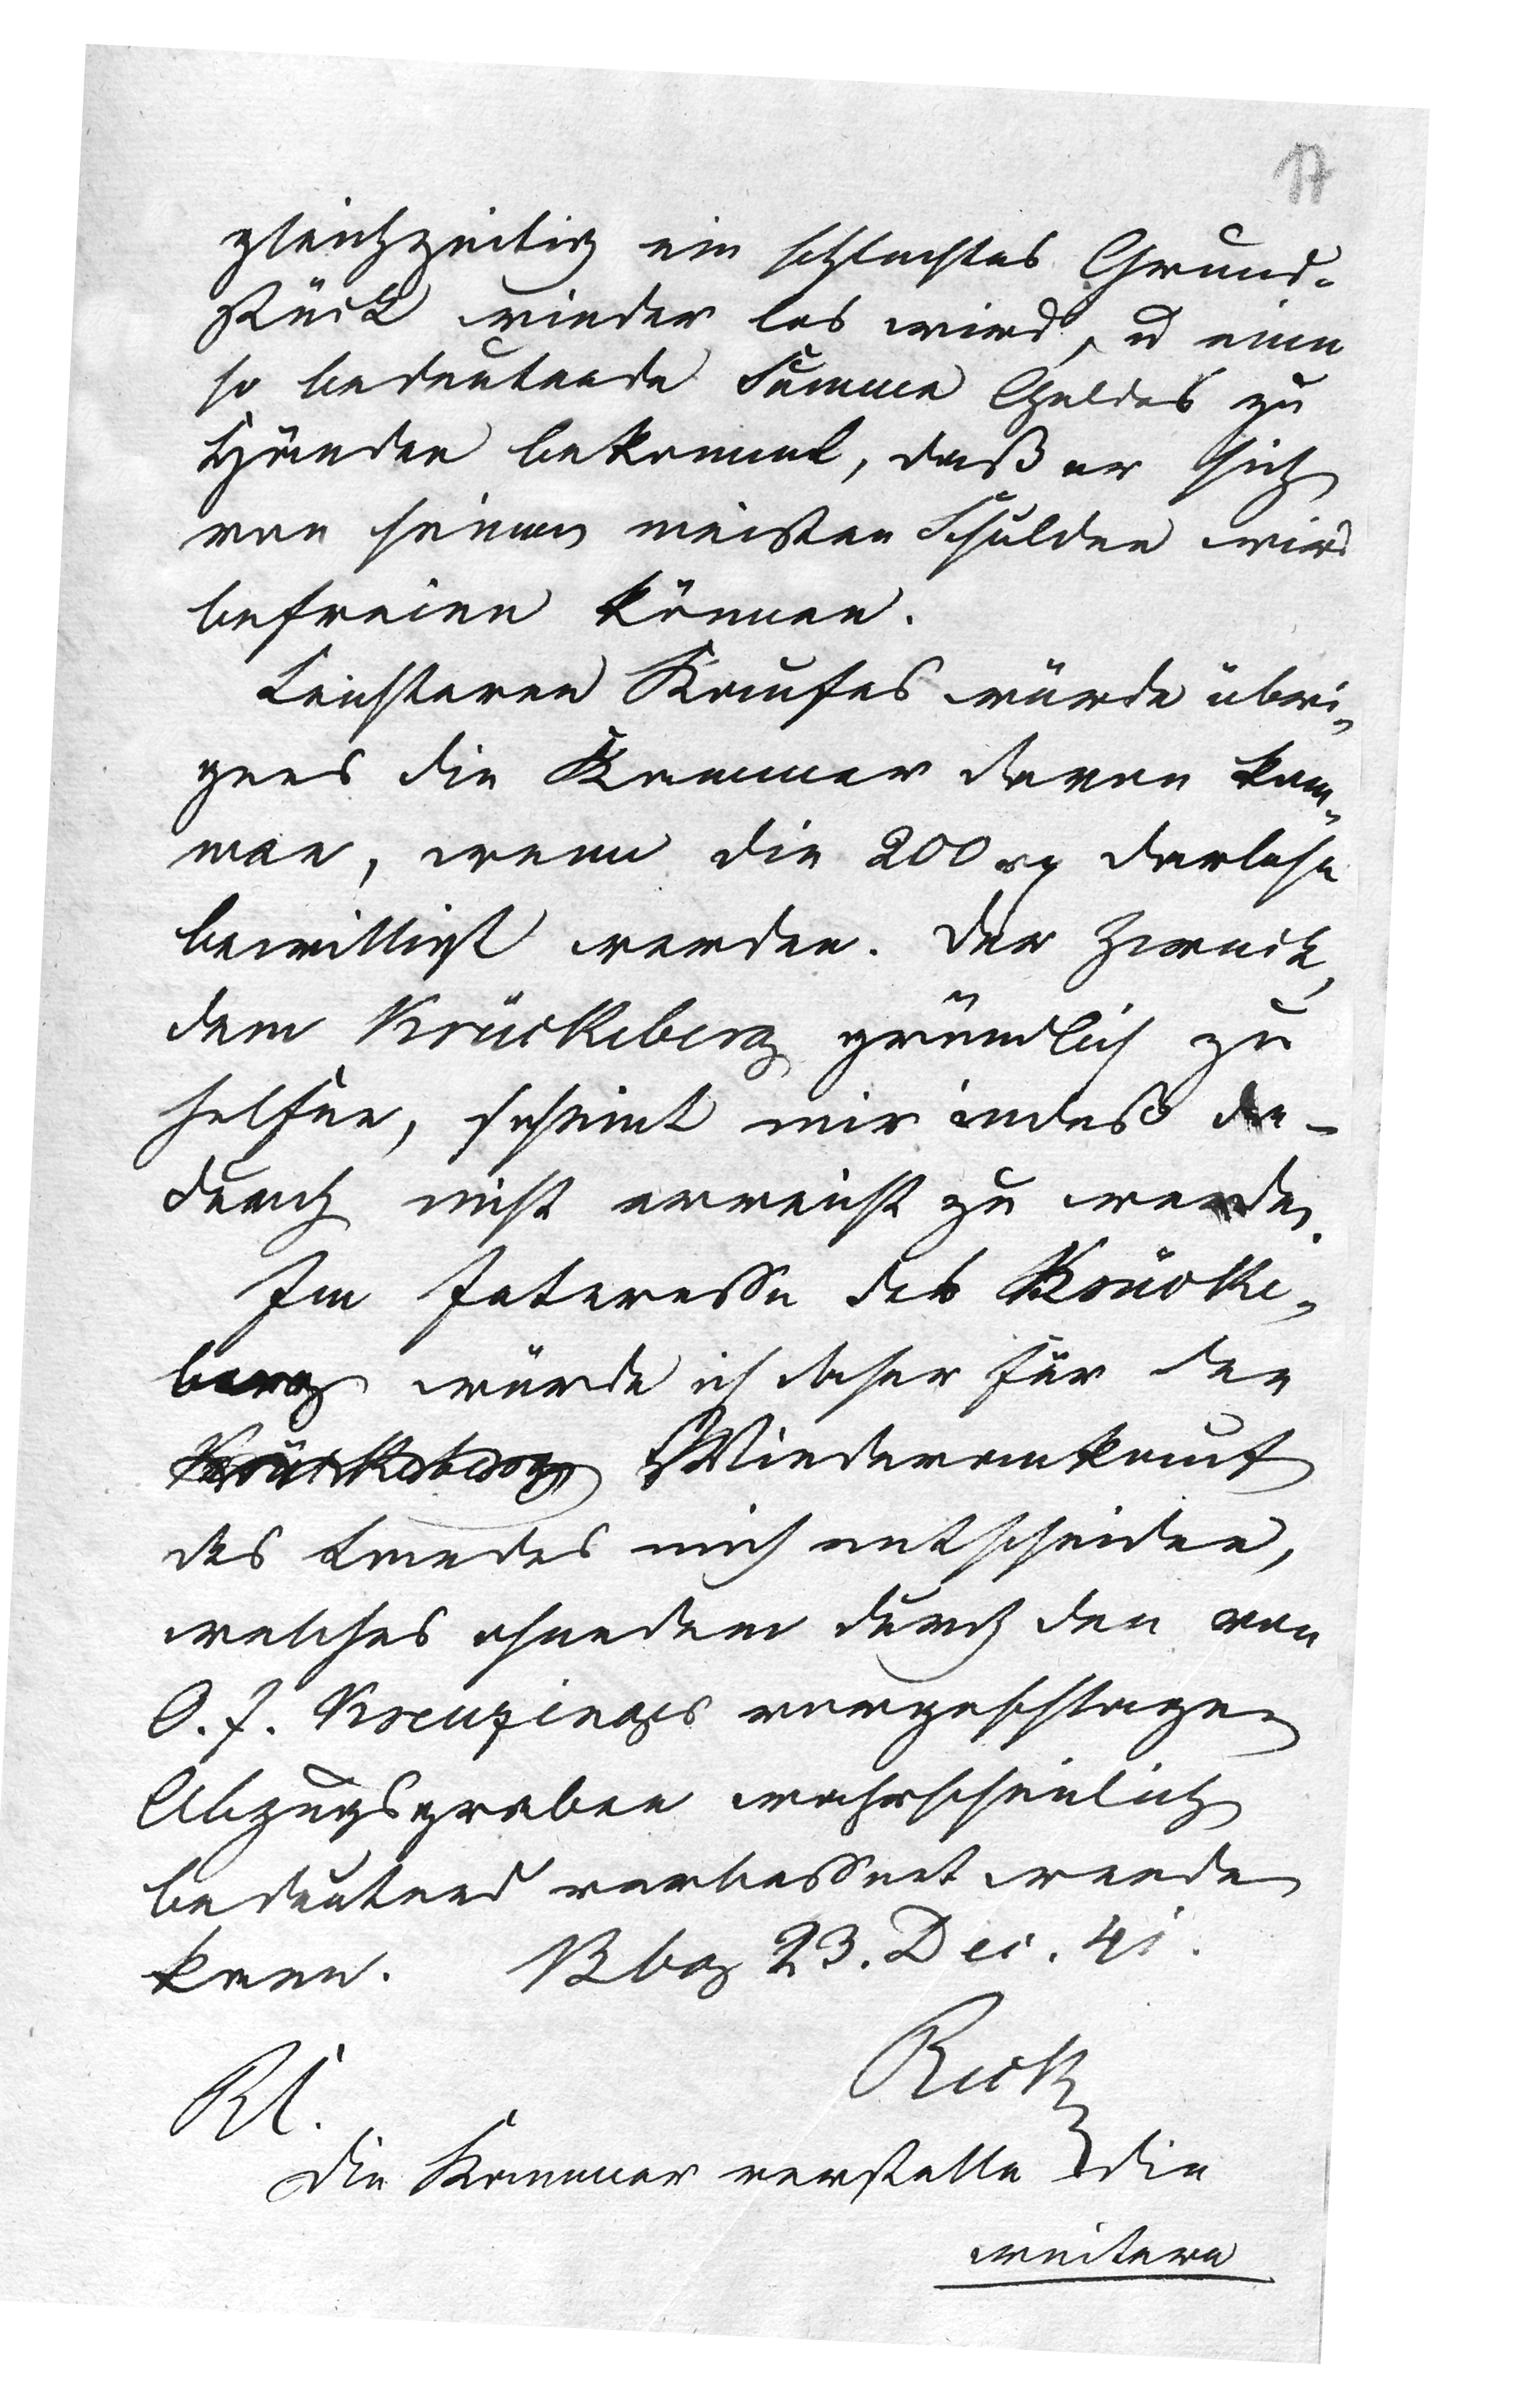 17
gleichzeitig ein schlechtes Grund-
stück wieder los wird, u eine
so bedeutende Summe Geldes zu
Händen bekommt, daß er sich
von seinen meisten Schulden wird
befreien können.
Leichteren Kaufes würde übri-
gens die Kammer davon kom-
men, wenn die 200 rg darlehn
bewilligt werden. Der Zweck,
dem Krückeberg gründlich zu
helfen, scheint mir indeß da-
durch nicht erreicht zu werden.
Im Interesse des Krücke-
berg würde ich daher für den
Krückeberg Wiederankauf
des Landes mich entscheiden,
welches ohnedem durch den von
O. f. Kreuzinger vorgeschlagen
Abzugsgraben wahrscheinlich
bedeutend verbessert werden
kann. Bbg 23. Dec. 41.
Rl.
Die Kammer verstatte die
weitere